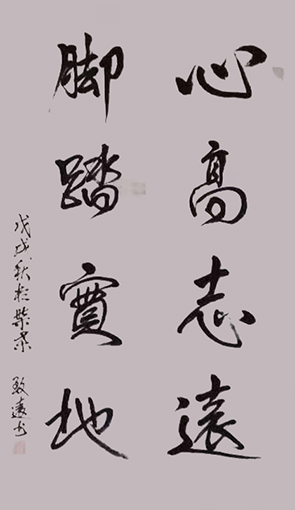 心高志遠
脚踏實地
戊戌秋於紫来
致遠书